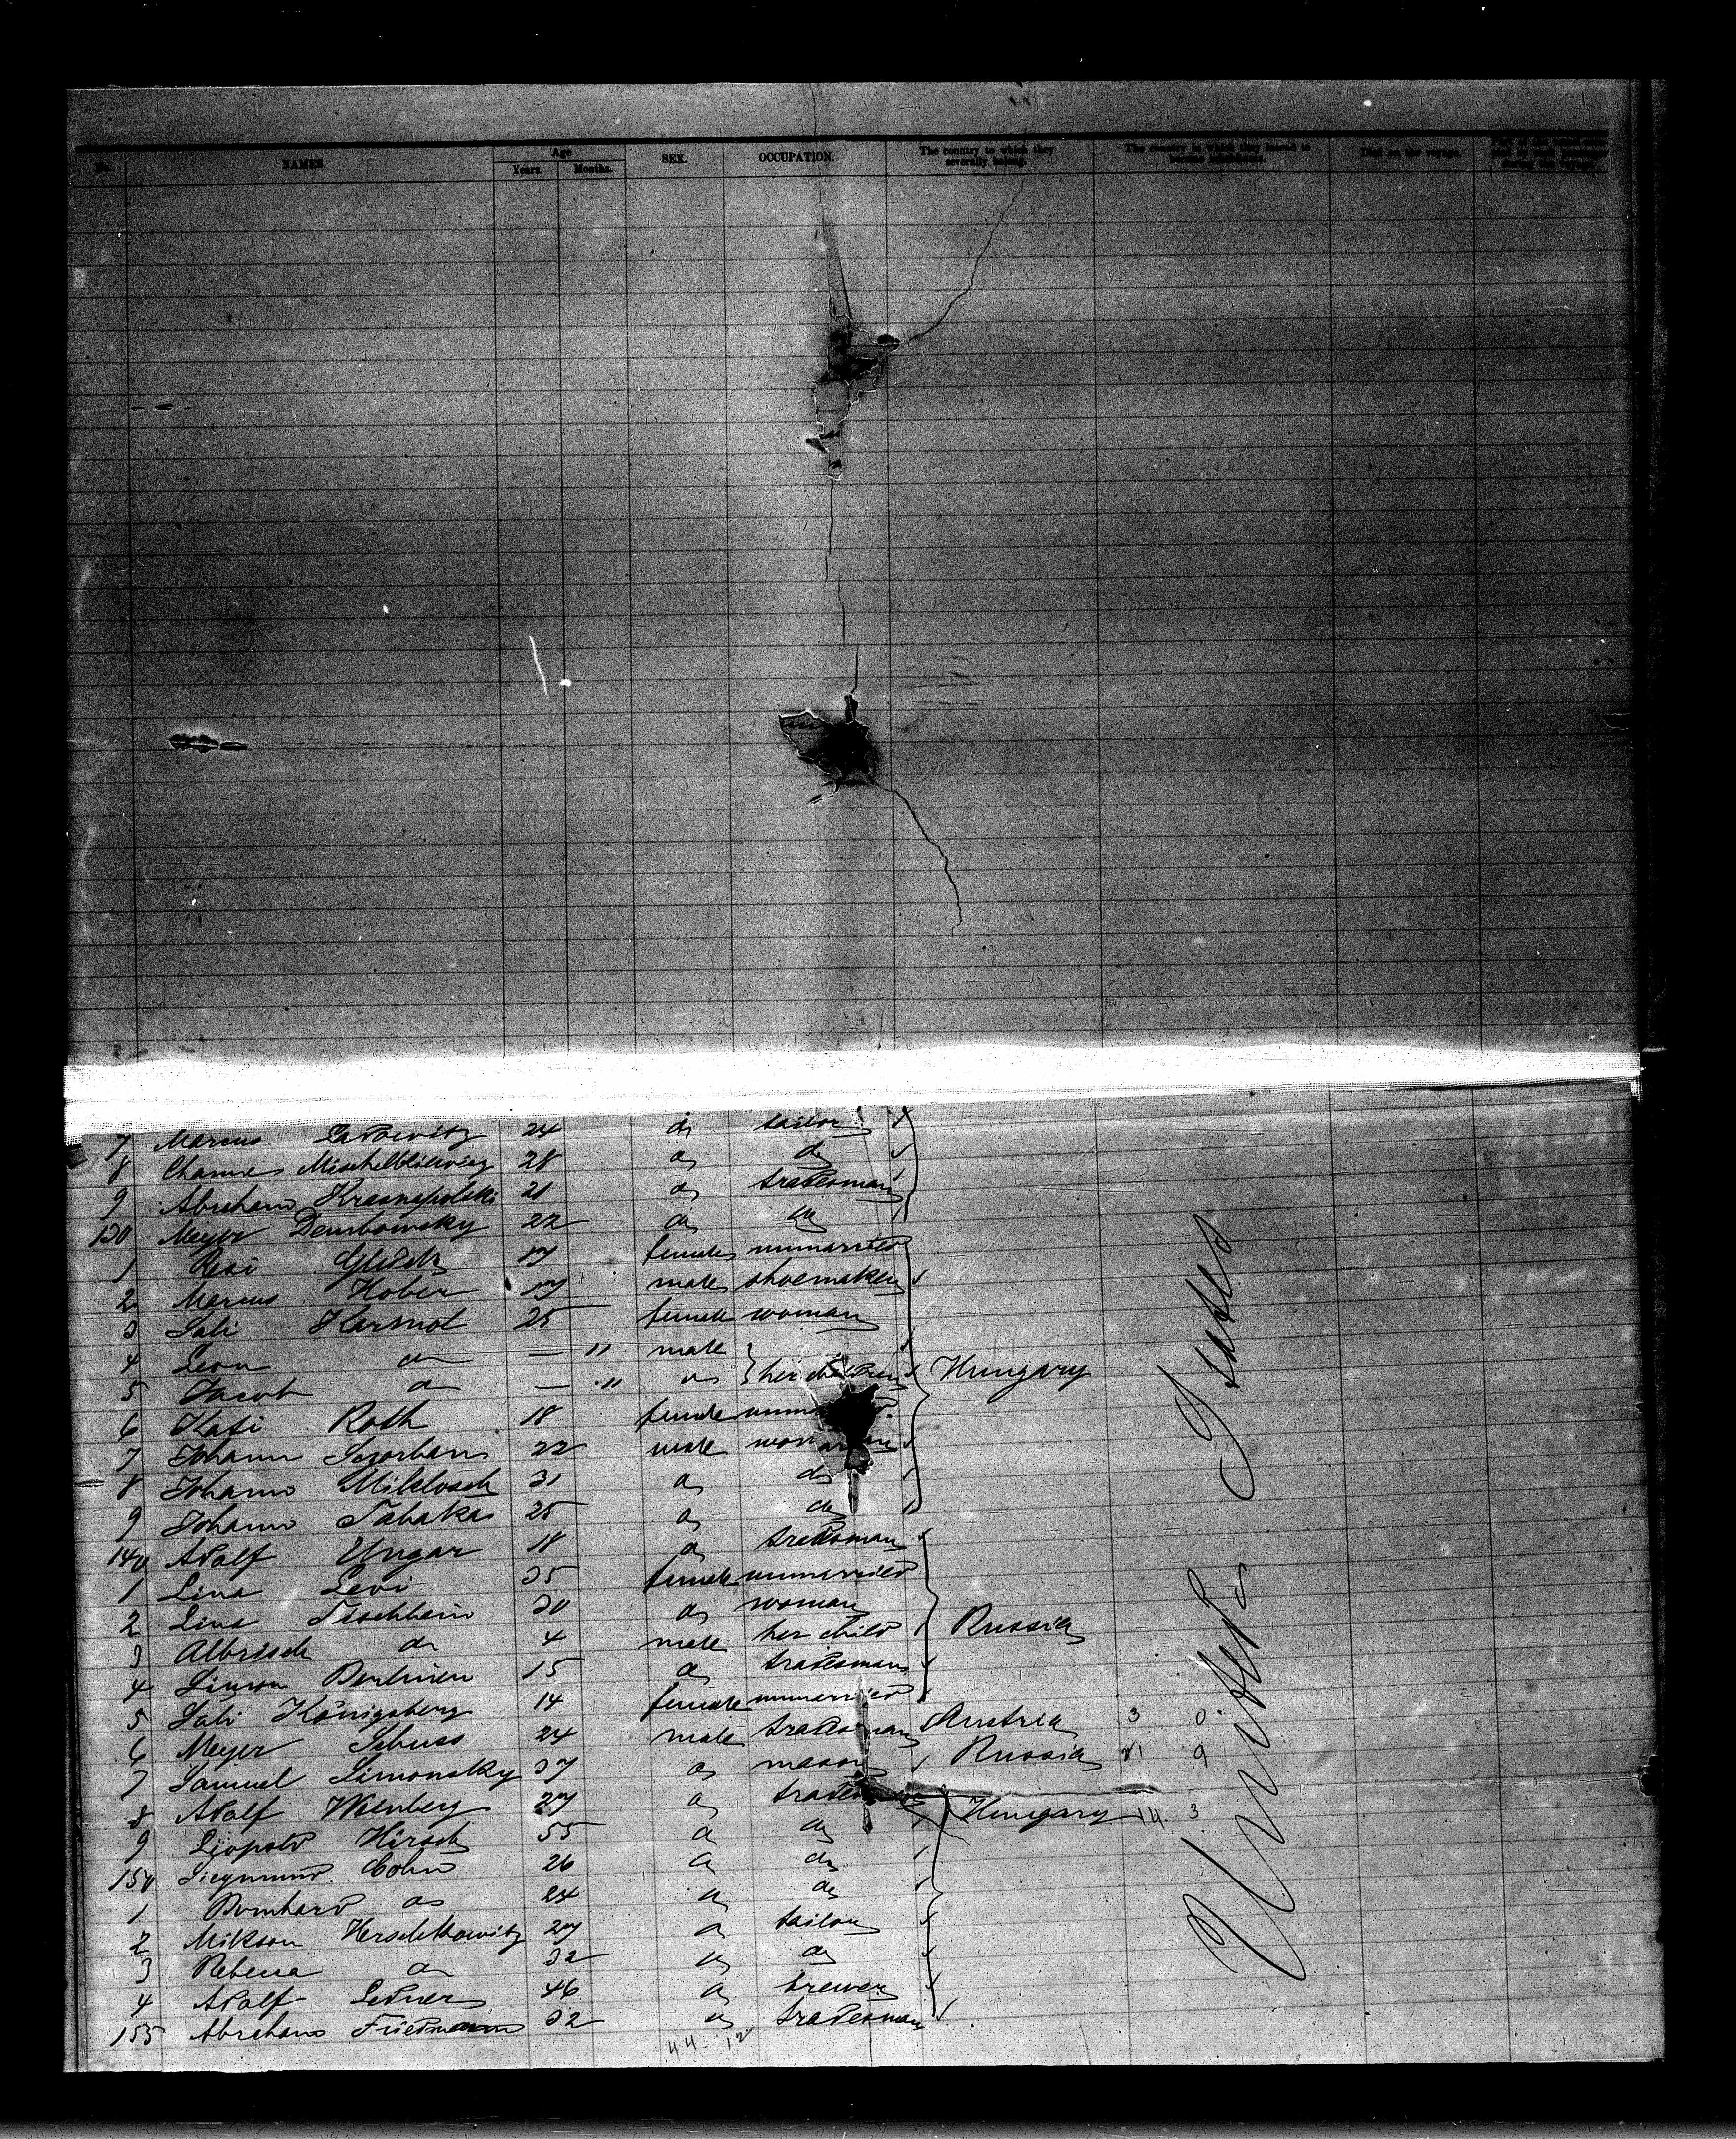 No. NAMES. Age Years. Months. SEX. OCCUPATION. The country to which they severally belong. The country in which they intend to become inhabitants. Died on the voyage.
7 Marcus 24 do tailor
8 28 do do
9 Abraham Krasnapolski 21 do tradesman
130 Meyer Dembowsky 22 do do
1 Resi Glück 17 female unmarried
2 Marcus Hober 17 male shoemaker
3 Sali 25 female woman
4 Leon do — 11 male
5 Jacob do — 11 do her children Hungary
6 Kati Roth 18 female
7 Johann Szorban 22 male
8 Johann Miklosch 31 do do
9 Johann Tabaka 25 do do
140 Adolf Ungar 18 do tradesman
1 Lina Levi 35 female unmarried
2 Lina Fischbein 30 do woman
3 do 4 male her child Russia
4 Simon 15 do tradesman
5 Sali Königsberg 14 female unmarried
6 Meyer Schuss 24 male tradesman Austria 3 0
7 Samuel Simonsky 37 do mason Russia 21 9
8 Adolf Weinberg 27 do Hungary 14. 3
9 Leopold Hirsch 55 do do
150 Siegmund Cohn 26 do do
1 Bernhard do 24 do do
2 Herschkowitz 27 do tailor
3 Rebecca do 32 do do
4 Adolf Ledner 46 do brewer
155 Abraham Friedmann 32 do tradesman
44 12
United States